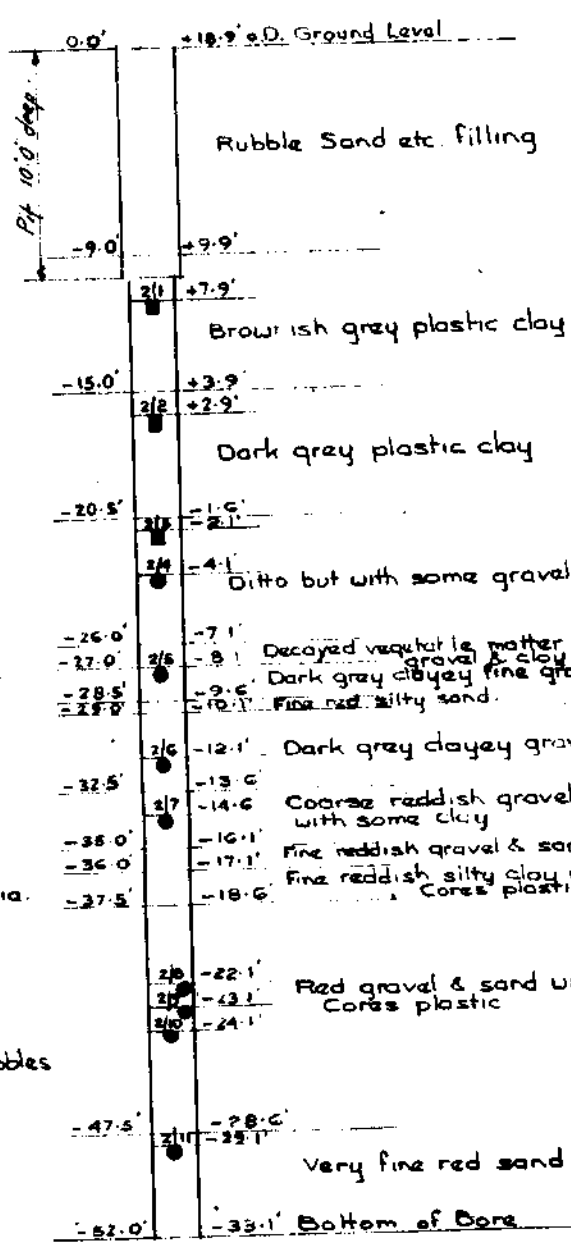 0.0' +18.9' O.D. Ground Level
Pit 10'.0" deep
Rubble Sand etc. filling
-9.0' +9.9'
2/1 +7.9'
Brownish grey plastic clay
-15.0' +3.9'
2/2 +2.9'
Dark grey plastic clay
-20.5' -1.6'
2/3 -2.1'
2/4 -4.1'
Ditto but with some gravel
-26.0' -7.1' Decayed vegetable matter
gravel & clay
-27.0' 2/5 -8.1'
Dark grey clayey fine gra
-28.5' -9.6'
-29.0' -10.1' Fine red silty sand.
2/6 -12.1' Dark grey clayey grav
-32.5' -13.6'
2/7 -14.6 Coarse reddish gravel
with some clay
-35.0' -16.1'
Fine reddish gravel & san
-36.0' -17.1'
Fine reddish silty clay
Cores plasti
ia. -37.5' -18.6'
2/8 -22.1'
Red gravel & sand wi
2/9 -23.1'
Cores plastic
2/10 -24.1'
bbles
-47.5' -28.6'
2/11 -29.1'
Very fine red sand
-52.0' -33.1' Bottom of Bore